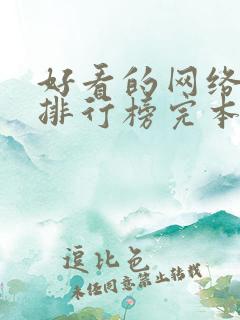 好看的网络
排行榜完本
逗比色
未经同意禁止转载